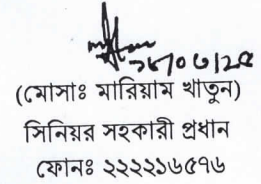 (মোসাঃ মারিয়াম খাতুন)
সিনিয়র সহকারী প্রধান
ফোনঃ ২২২২১৬৫৭৬